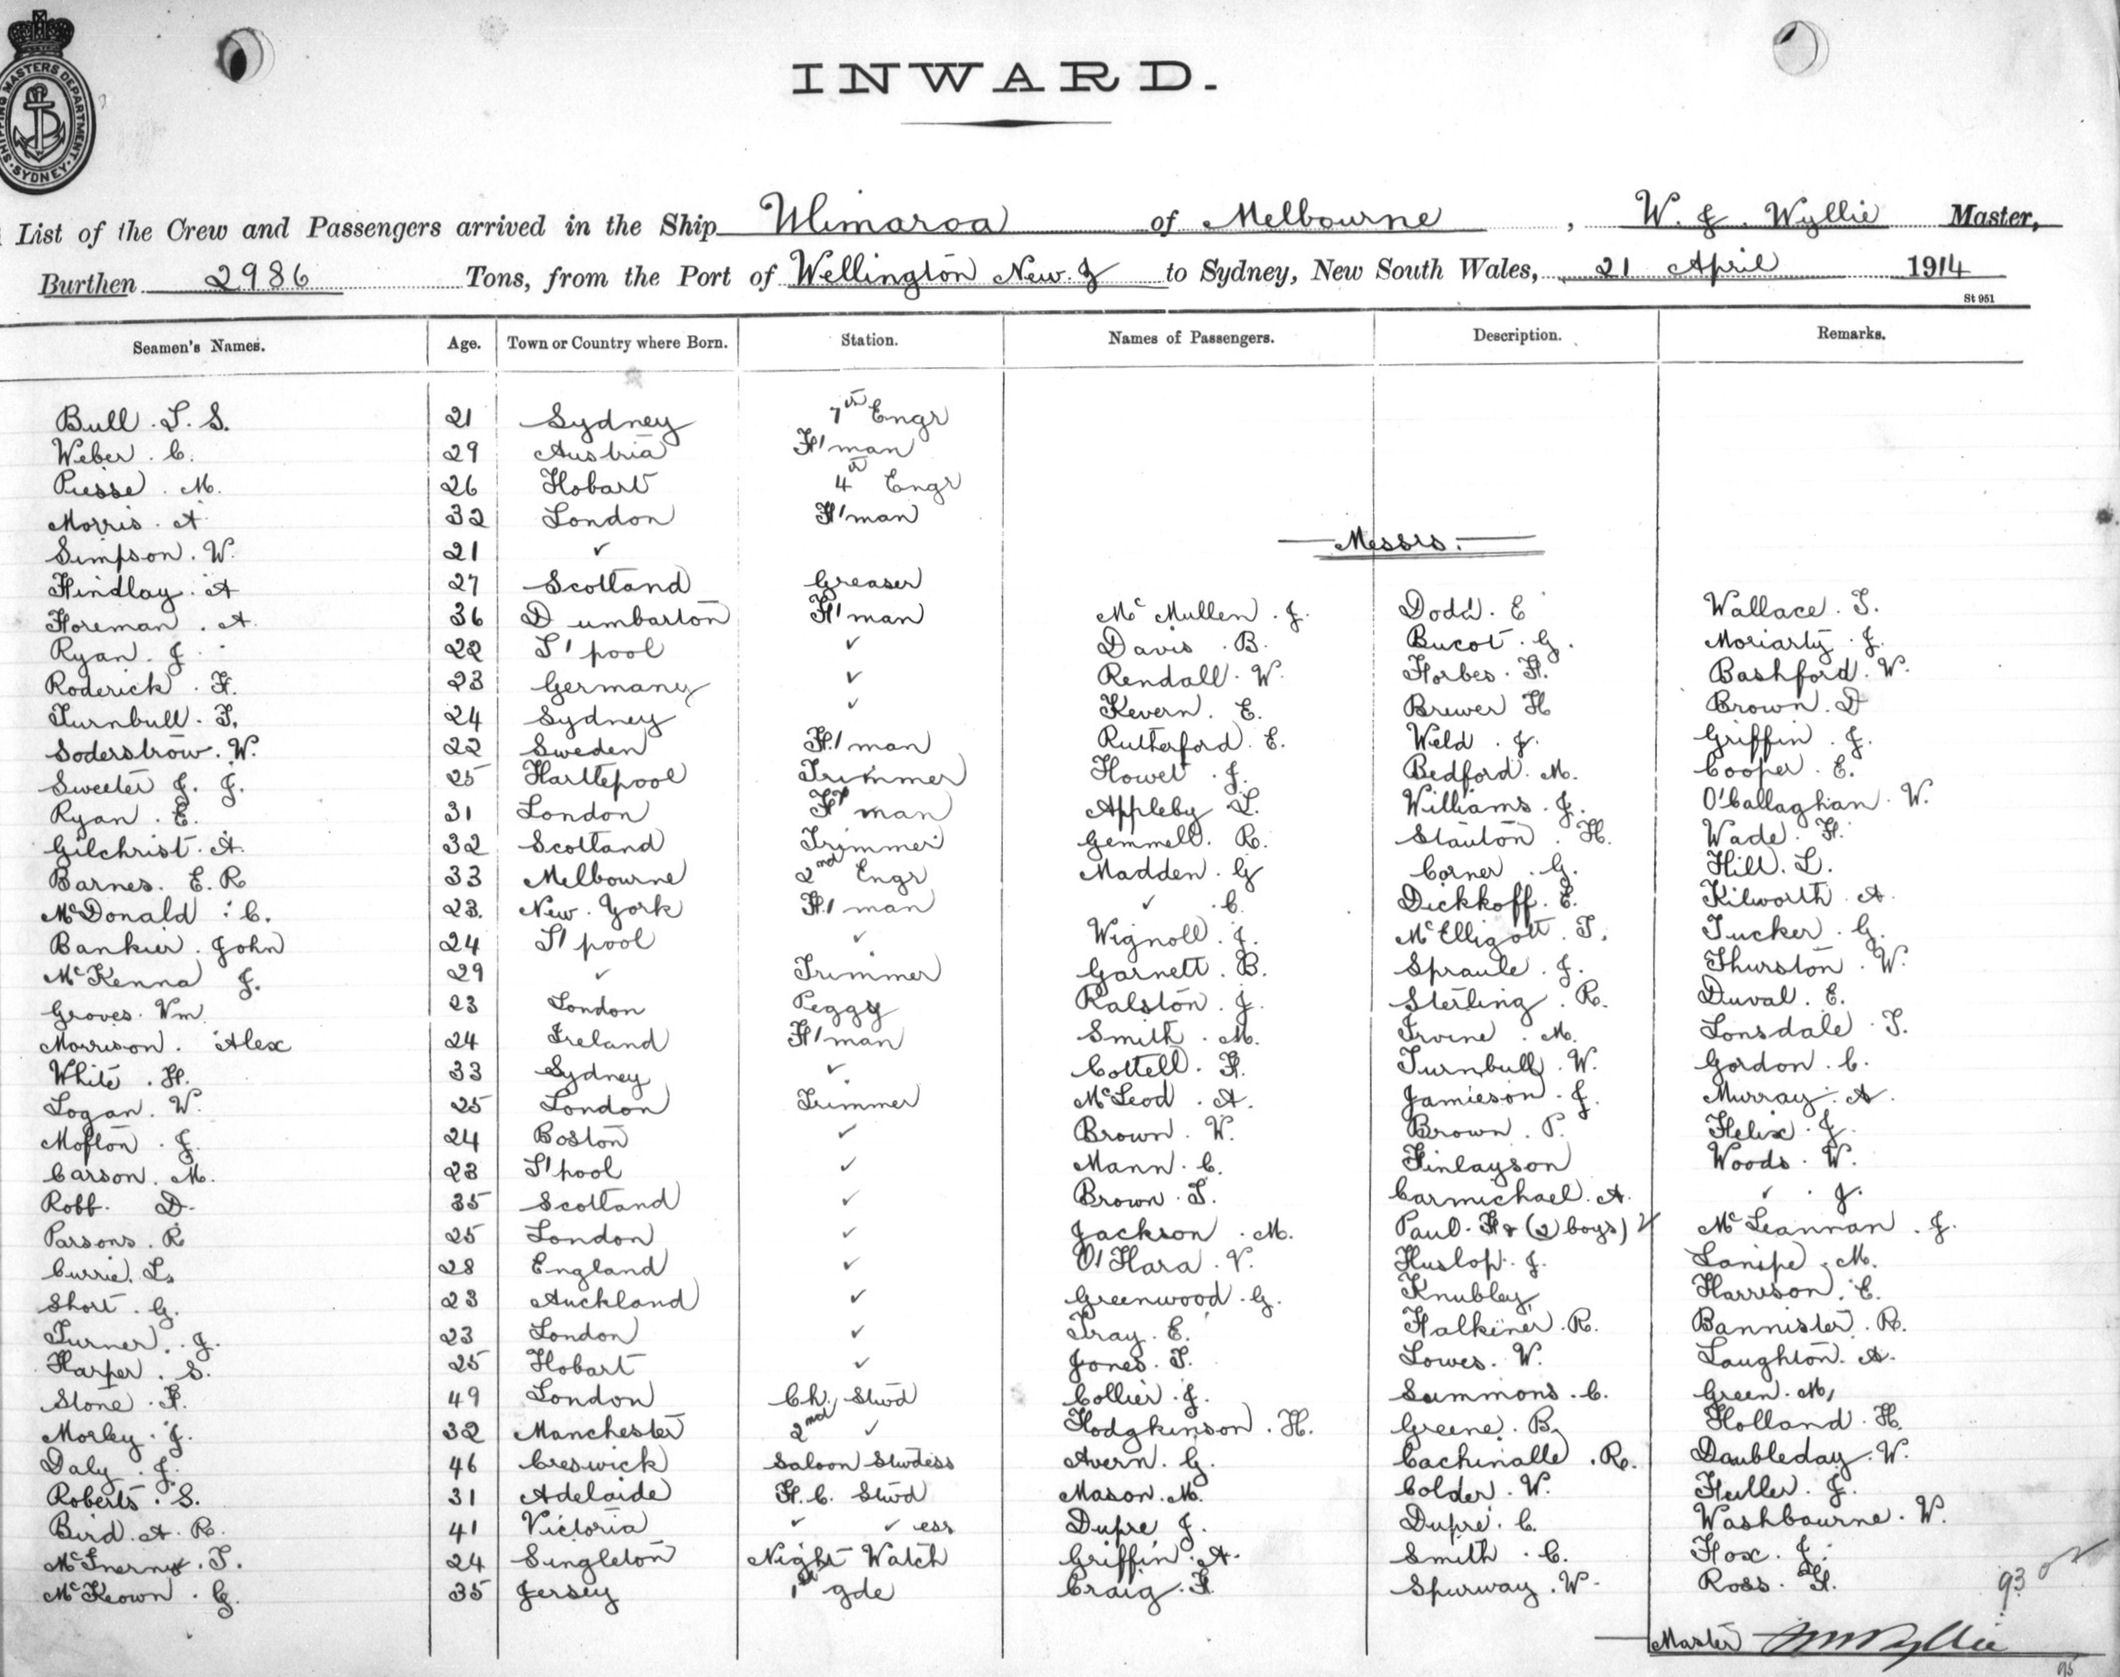 SHIPPING MASTERS DEPARTMENT. SYDNEY.
INWARD.
List of the Crew and Passengers arrived in the Ship Ulimaroa of Melbourne, W. J. Wyllie Master,
Burthen 2986 Tons, from the Port of Wellington New Z to Sydney, New South Wales, 21 April 1914
St 951
Seamen's Names. Age. Town or Country where Born. Station. Names of Passengers. Description. Remarks.
Bull . L. S. 21 Sydney 7th Engr
Weber . C. 29 Austria F'man
Piesse . M. 26 Hobart 4th Engr
Morris . A 32 London F'man
Simpson . W. 21 ✓
Messrs.
Findlay . A 27 Scotland Greaser
Foreman . A. 36 Dumbarton F'man McMullen . J. Dodd . E Wallace . T.
Ryan . J 22 L'pool ✓ Davis . B. Bucot . G. Moriarty . J.
Roderick . F. 23 Germany ✓ Rendall . W. Forbes . F. Bashford . W.
Turnbull . T. 24 Sydney ✓ Kevern . E. Brewer H Brown . D
Soderstrow . W. 22 Sweden F'man Rutherford . E. Weld . J. Griffin . J.
Sweeter J. J. 25 Hartlepool Trimmer Howet . J. Bedford . M. Cooper . E.
Ryan . E. 31 London F'man Appleby L. Williams . J. O'Callaghan . W.
Gilchrist . A. 32 Scotland Trimmer Gemmell . R. Stauton . H. Wade . F.
Barnes . E. R 33 Melbourne 2nd Engr Madden . G Corner . G. Hill . L.
McDonald : C. 23. New . York F'man ✓ . C. Dickkoff . E. Kilworth . A.
Bankier . John 24 L'pool ✓ Wignoll . J. McElligott . T. Tucker . G.
McKenna J. 29 ✓ Trimmer Garnett . B. Spraule . J. Thurston . W.
Groves . Wm 23 London Peggy Ralston . J. Sterling . R. Duval . E.
Morrison . Alex 24 Ireland F'man Smith . M. Irvine . M. Lonsdale . T.
White . H. 33 Sydney ✓ Cottell . F. Turnbull . W. Gordon . C.
Logan . W. 25 London Trimmer McLeod . A. Jamieson . J. Murray . A.
Mofton . J. 24 Boston ✓ Brown . W. Brown . P. Helix . J.
Carson . M. 23 L'pool ✓ Mann . C. Finlayson Woods . W.
Robb . D. 35 Scotland ✓ Brown . T. Carmichael . A. ✓ . J.
Parsons . R 25 London ✓ Jackson . M. Paul . F & (2 boys) McLeannan . J.
Currie . L. 28 England ✓ O'Hara . V. Huslop . J. Lanipe . M.
Short . G. 23 Auckland ✓ Greenwood . G. Knubley Harrison . E.
Turner . J. 23 London ✓ Tray . E. Falkiner . R. Bannister . R.
Harper . S. 25 Hobart ✓ Jones . T. Lowes . W. Laughton . A.
Stone . F. 49 London Ch. Stwd Collier . J. Summons . C. Green . M.
Morley . J. 32 Manchester 2nd ✓ Hodgkinson . H. Greene . B. Holland . H.
Daly . J. 46 Creswick Saloon Stwdess Avern . G. Cachinalle . R. Doubleday . W.
Roberts . S. 31 Adelaide F. C. Stwd Mason . M. Colder . W. Fuller . J.
Bird . A . R. 41 Victoria ✓ ✓ ess Dupre J. Dupre . C. Washbourne . W.
McInerny . T. 24 Singleton Night Watch Griffin . A. Smith . C. Fox . J.
McKeown . G. 35 Jersey 1st gde Craig . F. Spurway . W. Ross . H.
93
Master W J Wyllie